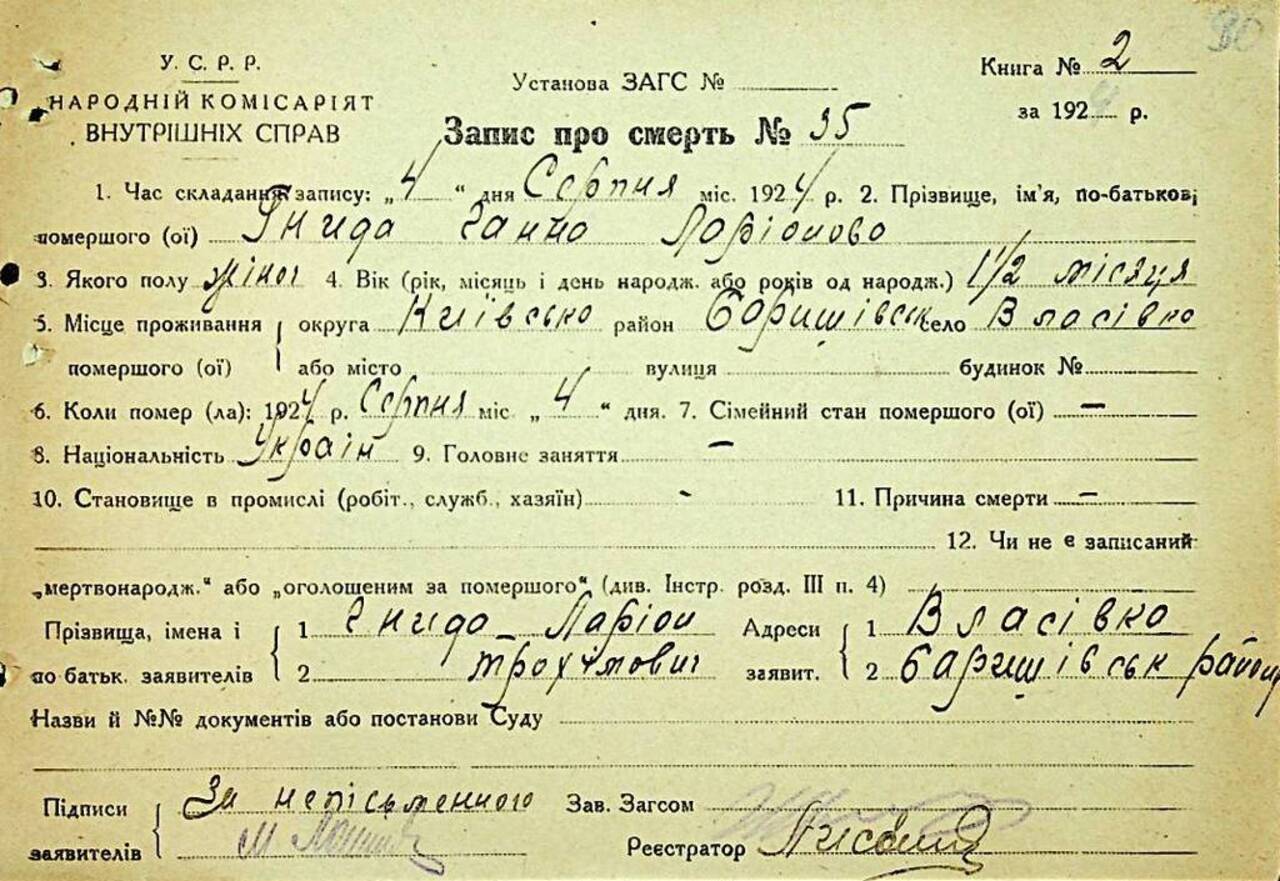 90
У. С. Р. Р.
НАРОДНІЙ КОМІСАРІЯТ
ВНУТРІШНІХ СПРАВ
Установа ЗАГС №
Книга № 2
за 1924 р.
Запис про смерть № 35
1. Час складання запису: „4“ дня Серпня міс. 1924 р. 2. Прізвище, ім'я, по-батькові
помершого (ої) Гнида Ганна Ларіонова
3. Якого полу жіноч 4. Вік (рік, місяць і день народж. або років од народж.) 1 1/2 місяця
5. Місце проживання округа Київсько район Баришівськ село Власівко
помершого (ої) або місто вулиця будинок №
6. Коли помер (ла): 1924 р. Серпня міс „4“ дня. 7. Сімейний стан помершого (ої) —
8. Національність Україн 9. Головне заняття —
10. Становище в промислі (робіт., служб., хазяїн) - 11. Причина смерти —
12. Чи не є записаний
„мертвонародж.“ або „оголошеним за помершого“ (див. Інстр. розд. III п. 4)
Прізвища, імена і 1 Гнидо Ларіон Адреси 1 Власівко
по батьк. заявителів 2 Трохімович заявит. 2 Баришівськ район
Назви й №№ документів або постанови Суду
Підписи За неписьменного Зав. Загсом
заявителів М Реєстратор